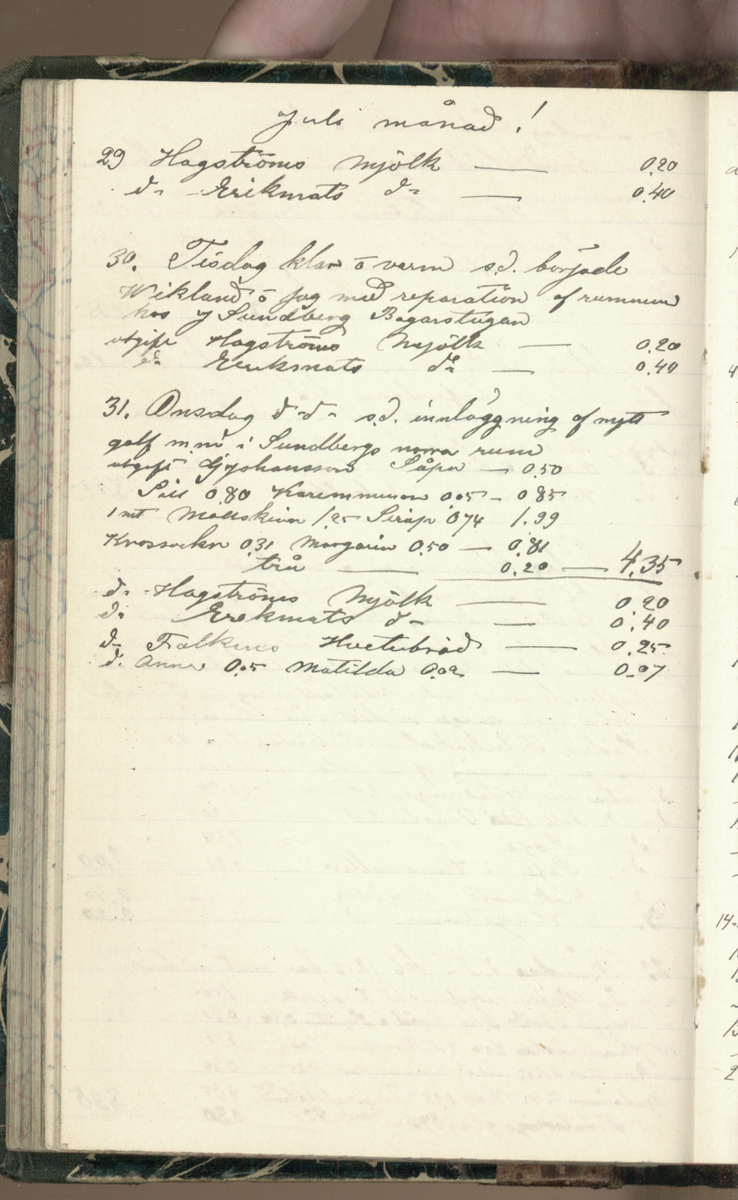 Juli månad!
29 Hagströms Mjölk — 0,20
d:o Erikmats d:o — 0,40
30. Tisdag klar o varm s.d. började
Wiklund o jag med reparation af rummen
hos J Sundberg Bagarstugan
utgift Hagströms Mjölk — 0,20
d:o Erikmats d:o — 0,40
31. Onsdag d:o d:o s.d. innläggning af nytt
golf m.m i Sundbergs norra rum
utgift Johansson Såpa — 0,50
Sill 0,80 0,05 – 0,85
1 mt 1,25 Sirap 0,74 1.99
0,31 Margarin 0,50 — 0,81
0,20 — 4,35
d:o Hagströms Mjölk — 0,20
d:o Erikmats d:o — 0,40
d:o Falkens Hvetebröd — 0,25
d:o Anna 0,05 Matilda 0,02 — 0,07
14